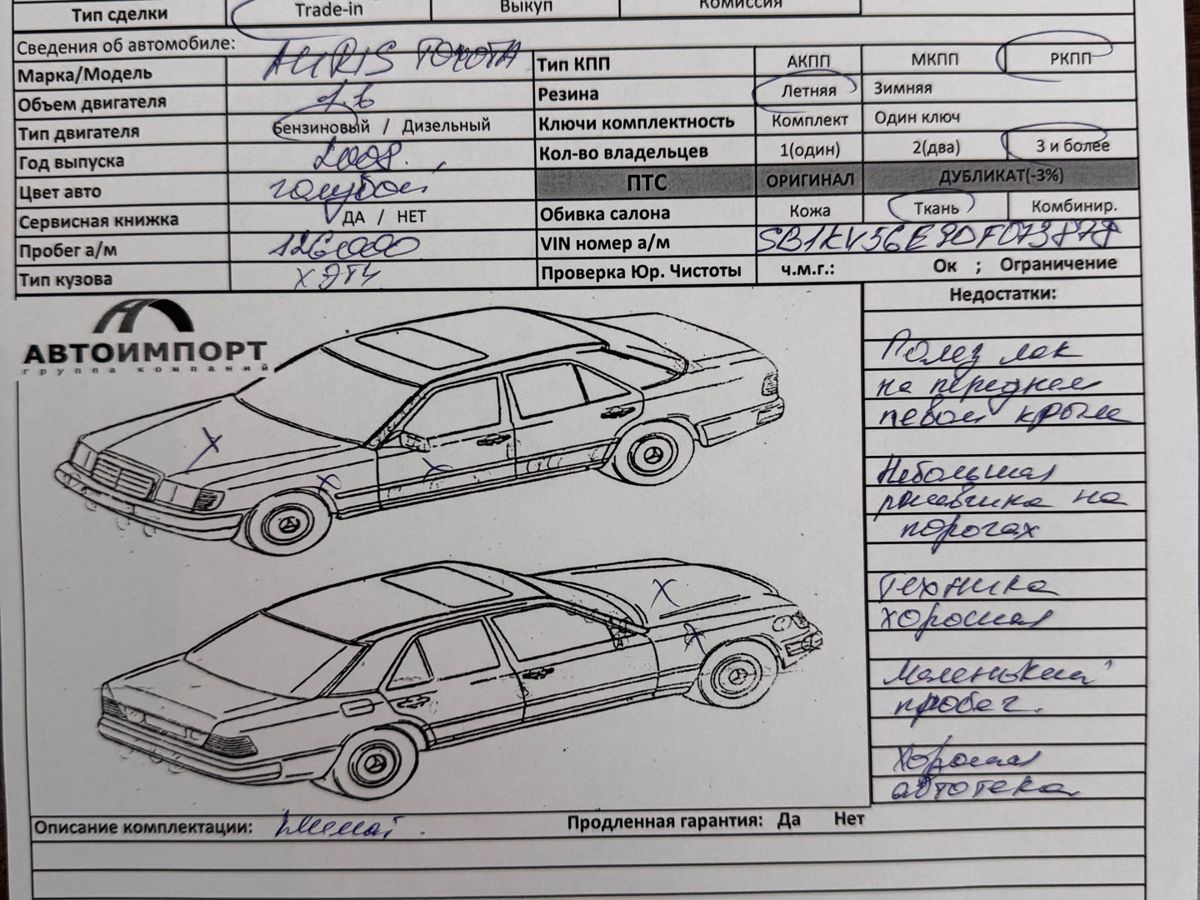 Тип сделки Trade-in Выкуп Комиссия
Сведения об автомобиле:
Марка/Модель AURIS TOYOTA Тип КПП АКПП МКПП РКПП
Объем двигателя 1.6 Резина Летняя Зимняя
Тип двигателя Бензиновый / Дизельный Ключи комплектность Комплект Один ключ
Год выпуска 2008. Кол-во владельцев 1(один) 2(два) 3 и более
Цвет авто голубой ПТС ОРИГИНАЛ ДУБЛИКАТ(-3%)
Сервисная книжка ДА / НЕТ Обивка салона Кожа Ткань Комбинир.
Пробег а/м 126000 VIN номер а/м SB1KV56E90F073878
Тип кузова ХЭТЧ Проверка Юр. Чистоты ч.м.г.: Ок ; Ограничение
Недостатки:
АВТОИМПОРТ
группа компаний
Полез лак
на переднем
левом крыле
Небольшая
ржавчинка на
порогах
Техника
хорошая
Маленький
пробег.
Хорошая
автотека
Описание комплектации: Продленная гарантия: Да Нет